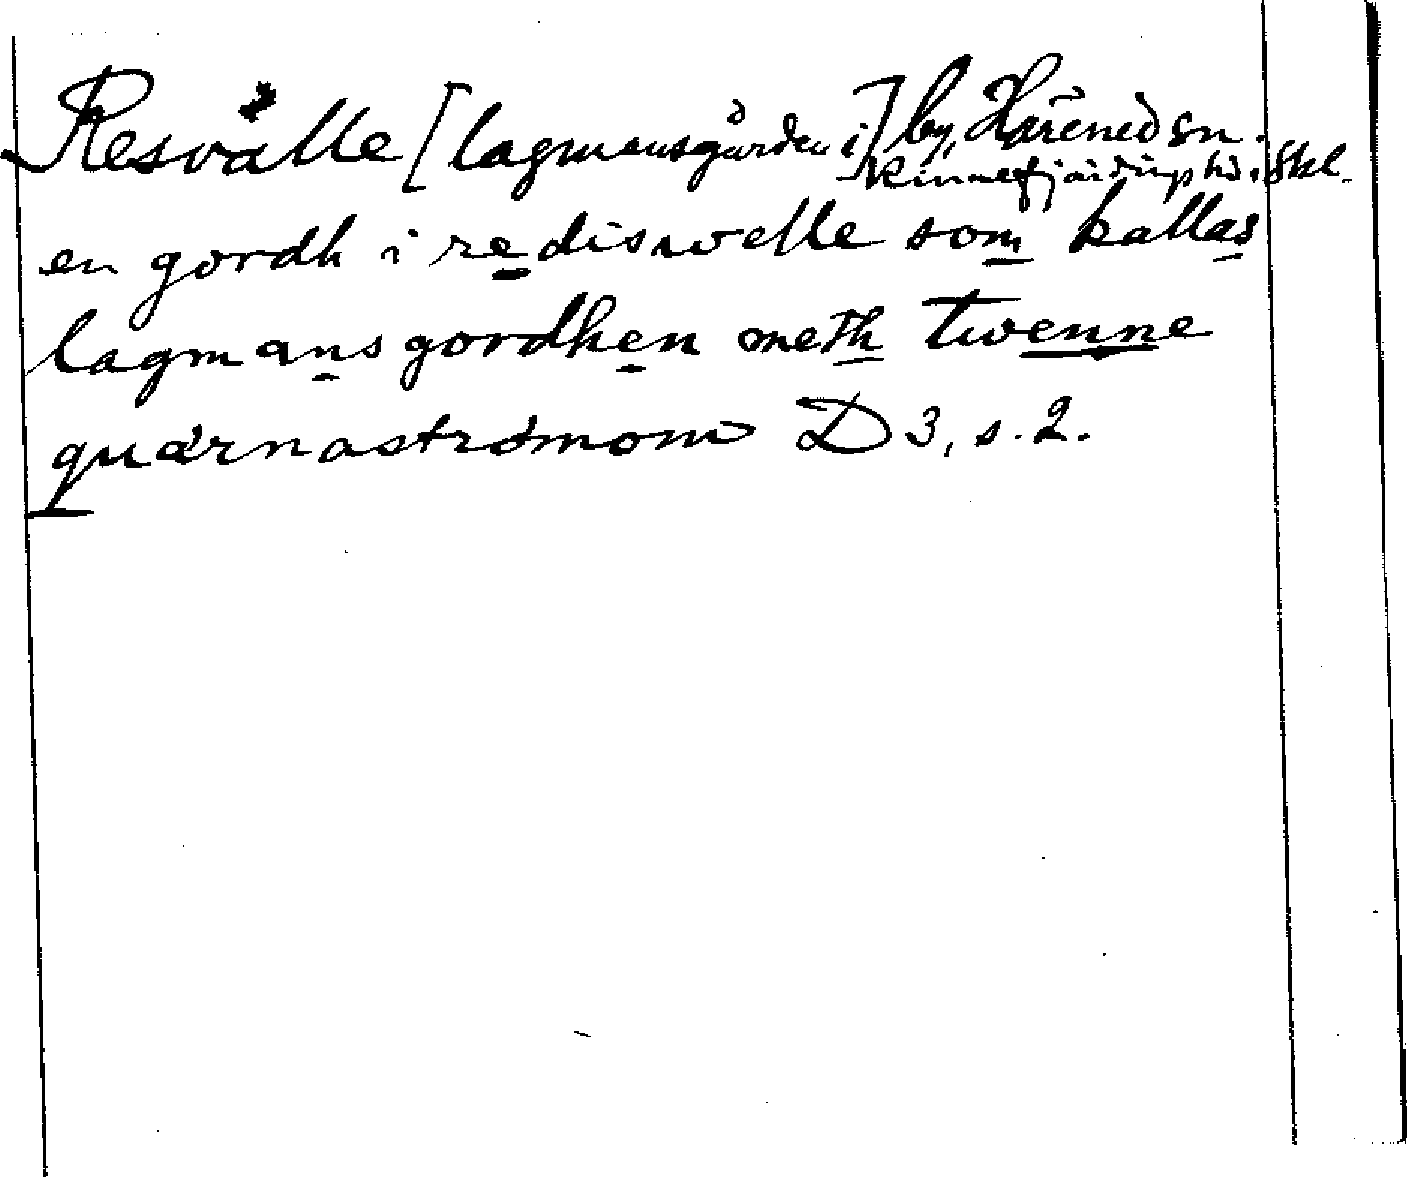 Resvälle [lagmansgården i] by, Härened sn.
Kinnefjärdings hd. Skl.
en gordh i rediswelle som kallas
lagmansgordhen meth twenne
quärnaströmom D 3, s. 2.